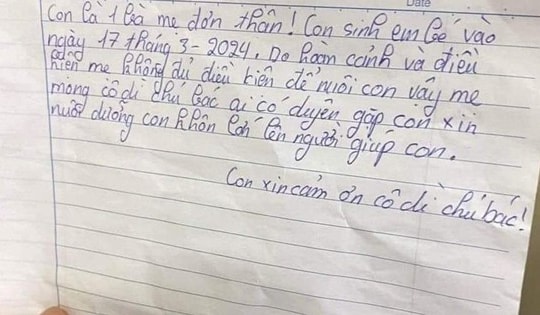 Date
Con là 1 bà mẹ đơn thân! Con sinh em bé vào
ngày 17 tháng 3-2024. Do hoàn cảnh và điều
kiện mẹ không đủ điều kiện để nuôi con vậy mẹ
mong cô dì chú bác ai có duyên gặp con xin
nuôi dưỡng con khôn lớn lên người giúp con.
Con xin cảm ơn cô dì chú bác!